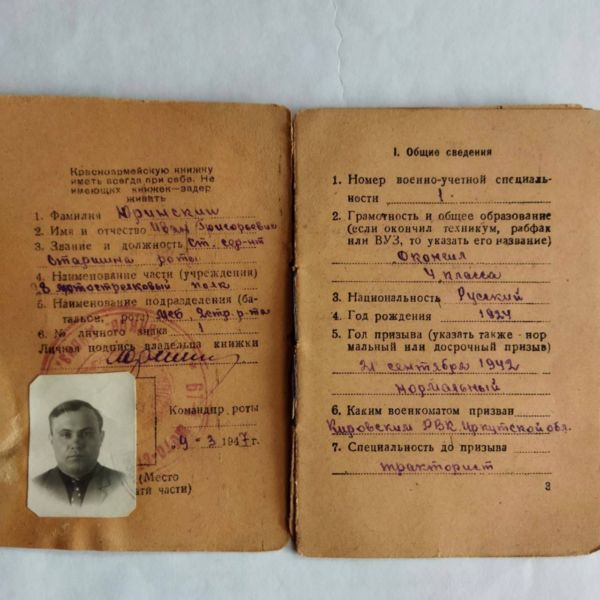 Красноармейскую книжку
иметь всегда при себе. Не
имеющих книжек—задер
живать
1. Фамилия Юринский
2. Имя и отчество Иван Григорьевич
3. Звание и должность Ст. сер-нт
Старшина роты
4. Наименование части (учреждения)
мотострелковый полк
5. Наименование подразделения (ба-
тальон, рота)
6. № личного знака 1
Личная подпись владельца книжки
Командир роты
9-3 1947 г.
(Место
ати части)
I. Общие сведения
1. Номер военно-учетной специаль-
ности 1
2. Грамотность и общее образование
(если окончил техникум, рабфак
или ВУЗ, то указать его название)
Окончил
4 класса
3. Национальность Русский
4. Год рождения 1924
5. Гол призыва (указать также - нор
мальный или досрочный призыв)
21 сентября 1942
нормальный
6. Каким военкоматом призван
Кировским РВК Иркутской обл.
7. Специальность до призыва
тракторист
3